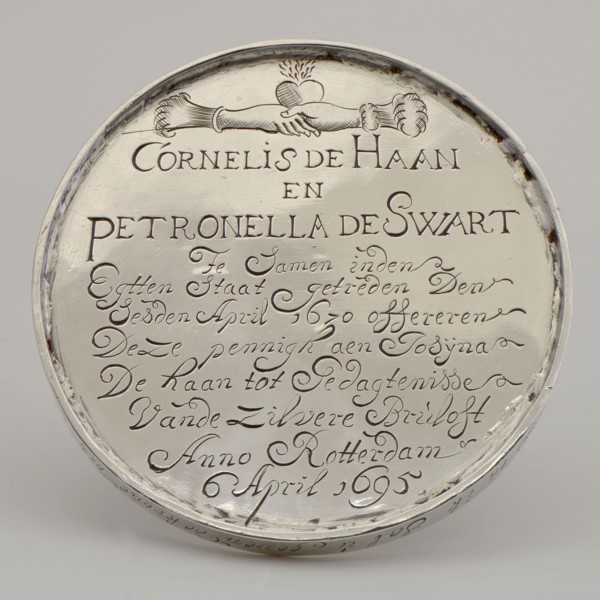 CORNELIS DE HAAN
EN
PETRONELLA DE SWART
Te Samen inden
Egtten Staat getreden Den
Sesden April 1670 offereren
Deze pennigh aen Josyna
De haan tot Gedagtenisse
Vande Zilvere Bruloft
Anno Rotterdam
6 April 1695